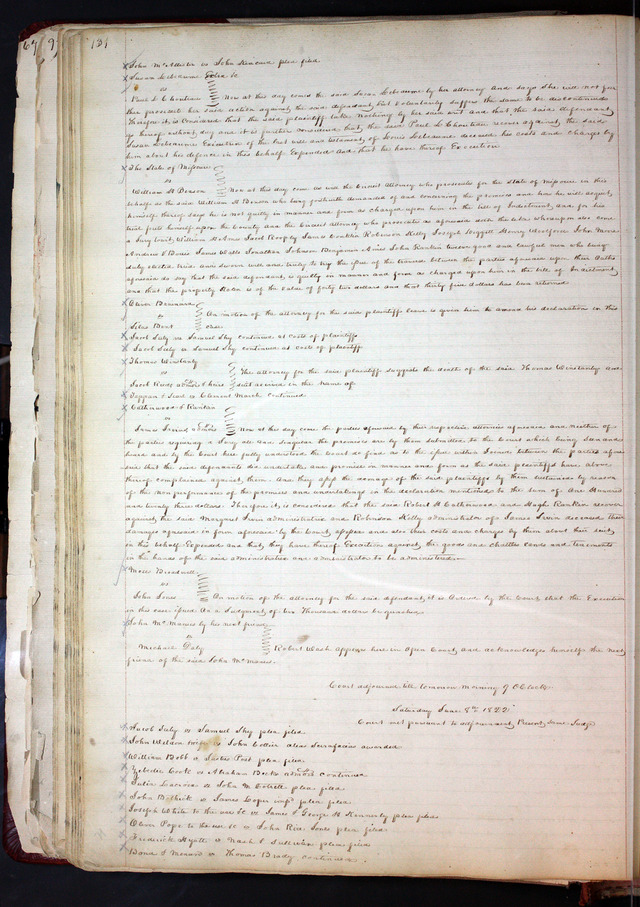 131
John McAllister vs John Kincaid plea filed
Susan Lecheanne Extrx &c
vs
Paul L Chouteau Now at this day comes the said Susan Lecheanne by her attorney and says she will not fur
ther prosecute her said action against the said defendant, but voluntarily suffers the same to be discontinued
Therefore it is considered that the said plaintiff take nothing by her said writ and that the said defendant
go hereof without day and it is further considered that the said Paul L Chouteau recover against the said
Susan Lecheanne Executrix of the last will and testament of Louis Lecheanne deceased his costs and charges by
him about his defence in this behalf Expended and that he have thereof Execution
The State of Missouri
vs
William H Benson Now at this day come as well the Circuit Attorney who prosecutes for the State of Missouri in this
behalf as the said William H Benson who being forthwith demanded of and concerning the premises and how he will acquit
himself thereof says he is not guilty in manner and form as charged upon him in the bill of Indictment, and for his
trial puts himself upon the County and the Circuit Attorney who prosecutes as aforesaid doth the like whereupon also come
a Jury to wit, William Robinson Kelly Joseph Henry John
Andrew Jonathan Johnson Benjamin John Rankin twelve good and lawful men who being
duly elected tried and sworn well and truly to try the issue of the traverse between the parties aforesaid upon their Oaths
aforesaid do say that the said defendant is guilty in manner and form as charged upon him in the bill of Indictment
and that the property stolen is of the value of forty two dollars and that thirty five dollars has been returned
Oliver
vs On motion of the attorney for the said plaintiffs leave is given him to amend his declaration in this
Silas case
Jacob July vs Samuel Shy continued at costs of plaintiff
Jacob July vs Samuel Shy continued at costs of plaintiff
Thomas Winstanly
vs The attorney for the said plaintiff suggests the death of the said Thomas Winstanly and
Jacob in the name of
vs Clement March continued
Catherwood & Rankin
vs
James Irwins admrs Now at this day come the parties aforesaid by their respective attornies aforesaid and neither of
the parties requiring a Jury all and singular the premises are by them submitted to the Court which being seen and
heard and by the Court here fully understood the Court do find as to the issue within Joined between the parties afore
said that the said defendants did undertake and promise in manner and form as the said plaintiffs have above
thereof complained against them. And they assess the damage of the said plaintiffs by them sustained by reason
of the non performance of the promises and undertakings in the declaration mentioned to the sum of One Hundred
and twenty three dollars. Therefore it is considered that the said Robert H Catherwood and Hugh Rankin recover
against the said Margaret Irwin administratrix and Robinson Kelly administrator of James Irwin deceased their
damages aforesaid in form aforesaid by the Court assessed and also their costs and charges by them about their suit
in this behalf Expended and that they have thereof Execution against the goods and chattles lands and tenements
in the hands of the said administratrix and administrator to be administered
Moses Bradwell
vs
John Jones On motion of the attorney for the said defendant it is Ordered by the Court that the Execution
in this case issued on a Judgment of two Thousand dollars be quashed
John McManus by his next friend
vs
Michael Daly Robert Wash appears here in Open Court and acknowledges himself the next
friend of the said John McManus.
Court adjourned till tomorrow morning 9 OClock
Saturday June 8th 1822
Court met pursuant to adjournment, Present, same Judge
Jacob July vs Samuel Shy plea filed
John Wildon vs John Collier alias Scirefacias awarded
William Bobb a Justus Post plea filed
Zebedee Cook vs Abraham Beck admors continued
Julia Lacroix vs John M plea filed
John B vs James Loper impd plea filed
Joseph White to the use &c vs James & George H Kennerly plea filed
Oliver Pope to the use &c vs John Rice Jones plea filed
Frederick Hyatt vs Nash & Sullivan plea filed
Bond & Menard vs Thomas Brady continued